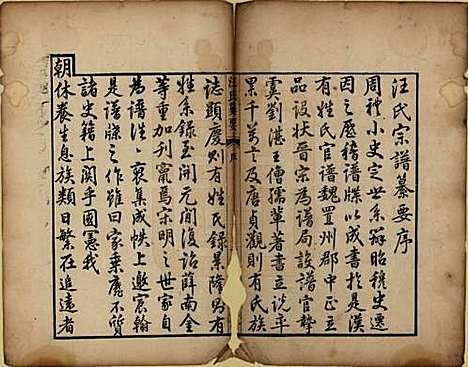 汪氏宗譜纂要序
周禮小史定世系辨昭穆史遷
因之歷稽譜牒以成書於是漢
有姓氏官譜魏置州郡中正立
品設狀晉宗為譜局設譜官摯
虞劉湛王僧孺輩著書立說卒
累千萬言及唐貞觀則有氏族
誌顯慶則有姓氏錄景隆則有
姓系錄至開元間復詔薛南金
等重加刊竄焉宋明之世家自
為譜洋洋裒集成帙上邀宸翰
是譜牒之作雖曰家乘靡不質
諸史籍上關乎國憲我
朝休養生息族類日繁在追遠者